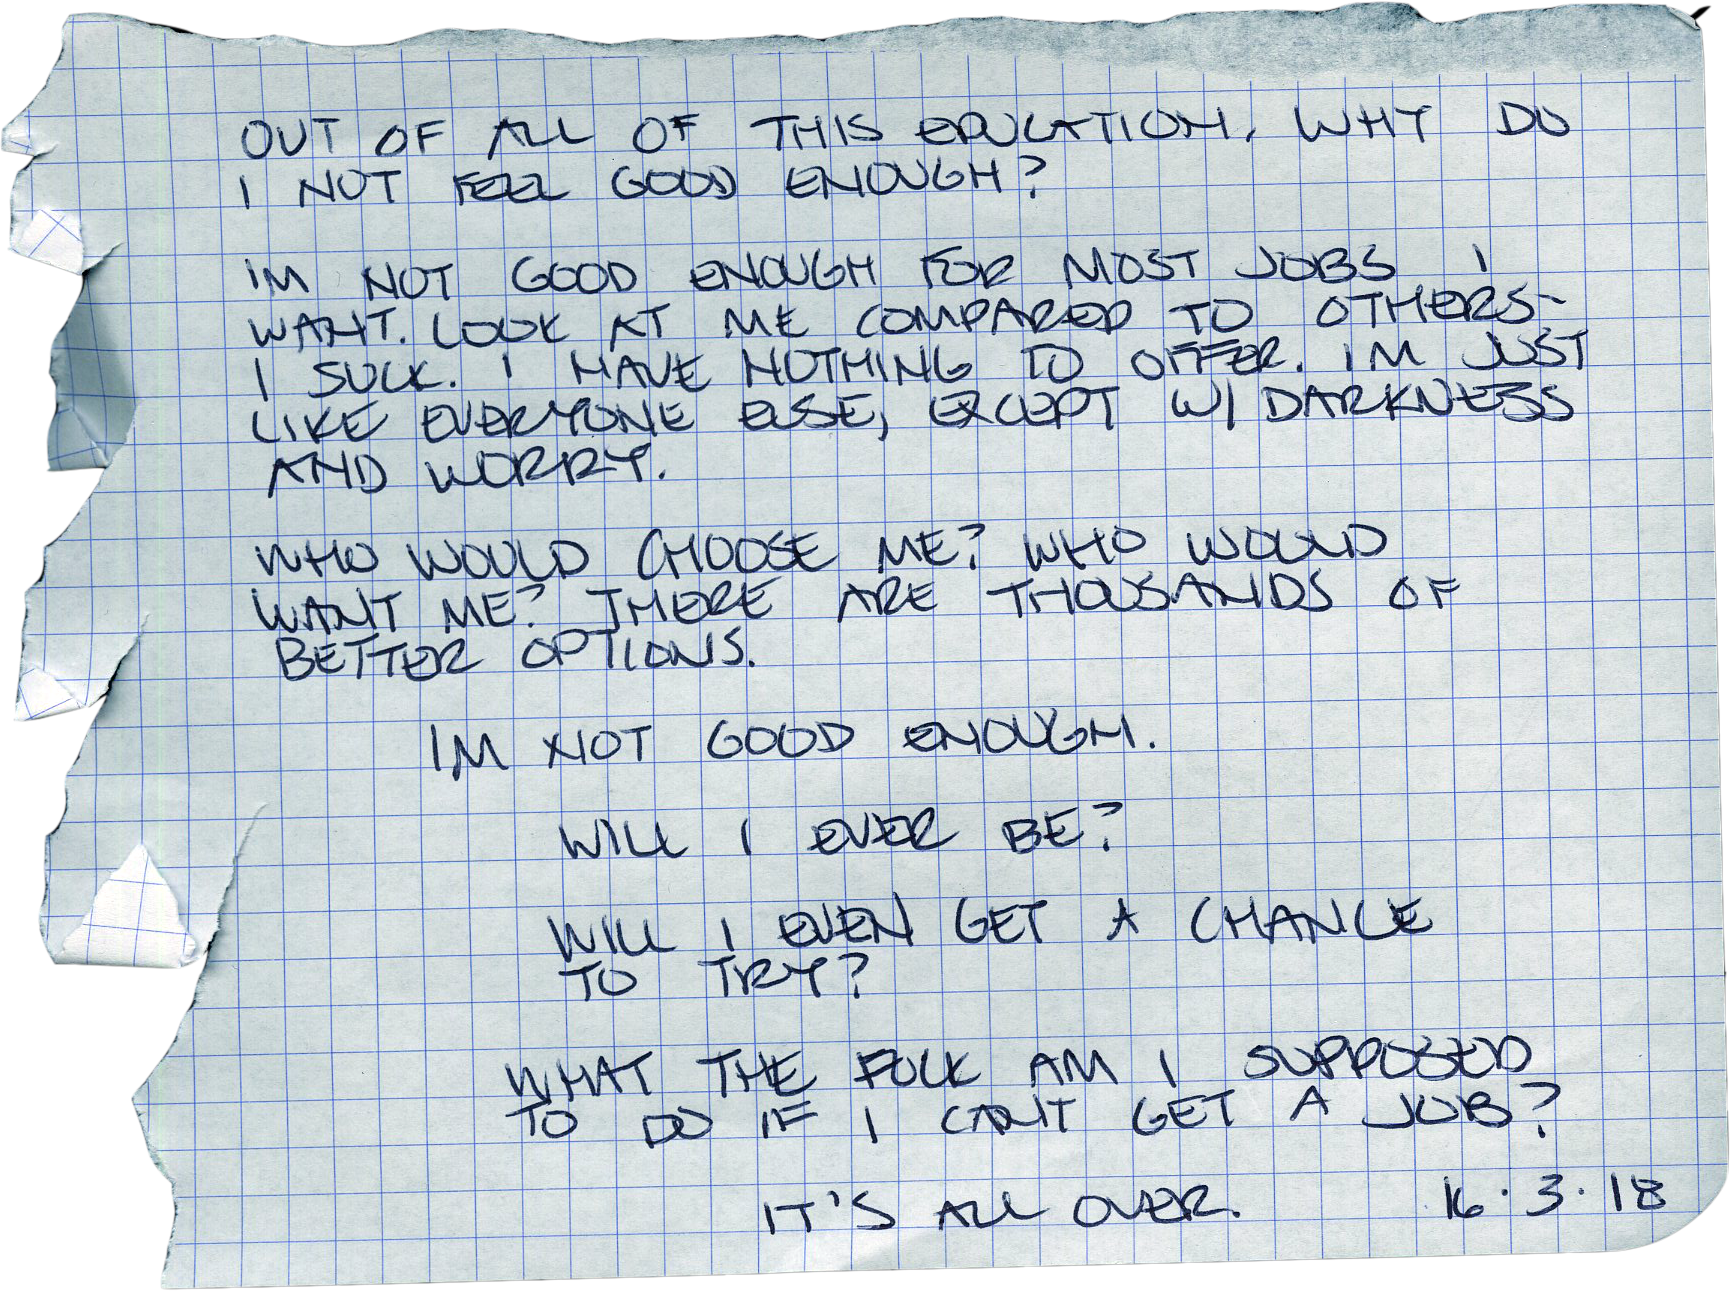 OUT OF ALL OF THIS EDUCATION, WHY DO
I NOT FEEL GOOD ENOUGH?
IM NOT GOOD ENOUGH FOR MOST JOBS I
WANT. LOOK AT ME COMPARED TO OTHERS-
I SUCK. I HAVE NOTHING TO OFFER. IM JUST
LIKE EVERYONE ELSE, EXCEPT W/ DARKNESS
AND WORRY.
WHO WOULD CHOOSE ME? WHO WOULD
WANT ME? THERE ARE THOUSANDS OF
BETTER OPTIONS.
IM NOT GOOD ENOUGH.
WILL I EVER BE?
WILL I EVEN GET A CHANCE
TO TRY?
WHAT THE FUCK AM I SUPPOSED
TO DO IF I CAN'T GET A JOB?
IT'S ALL OVER. 16.3.18